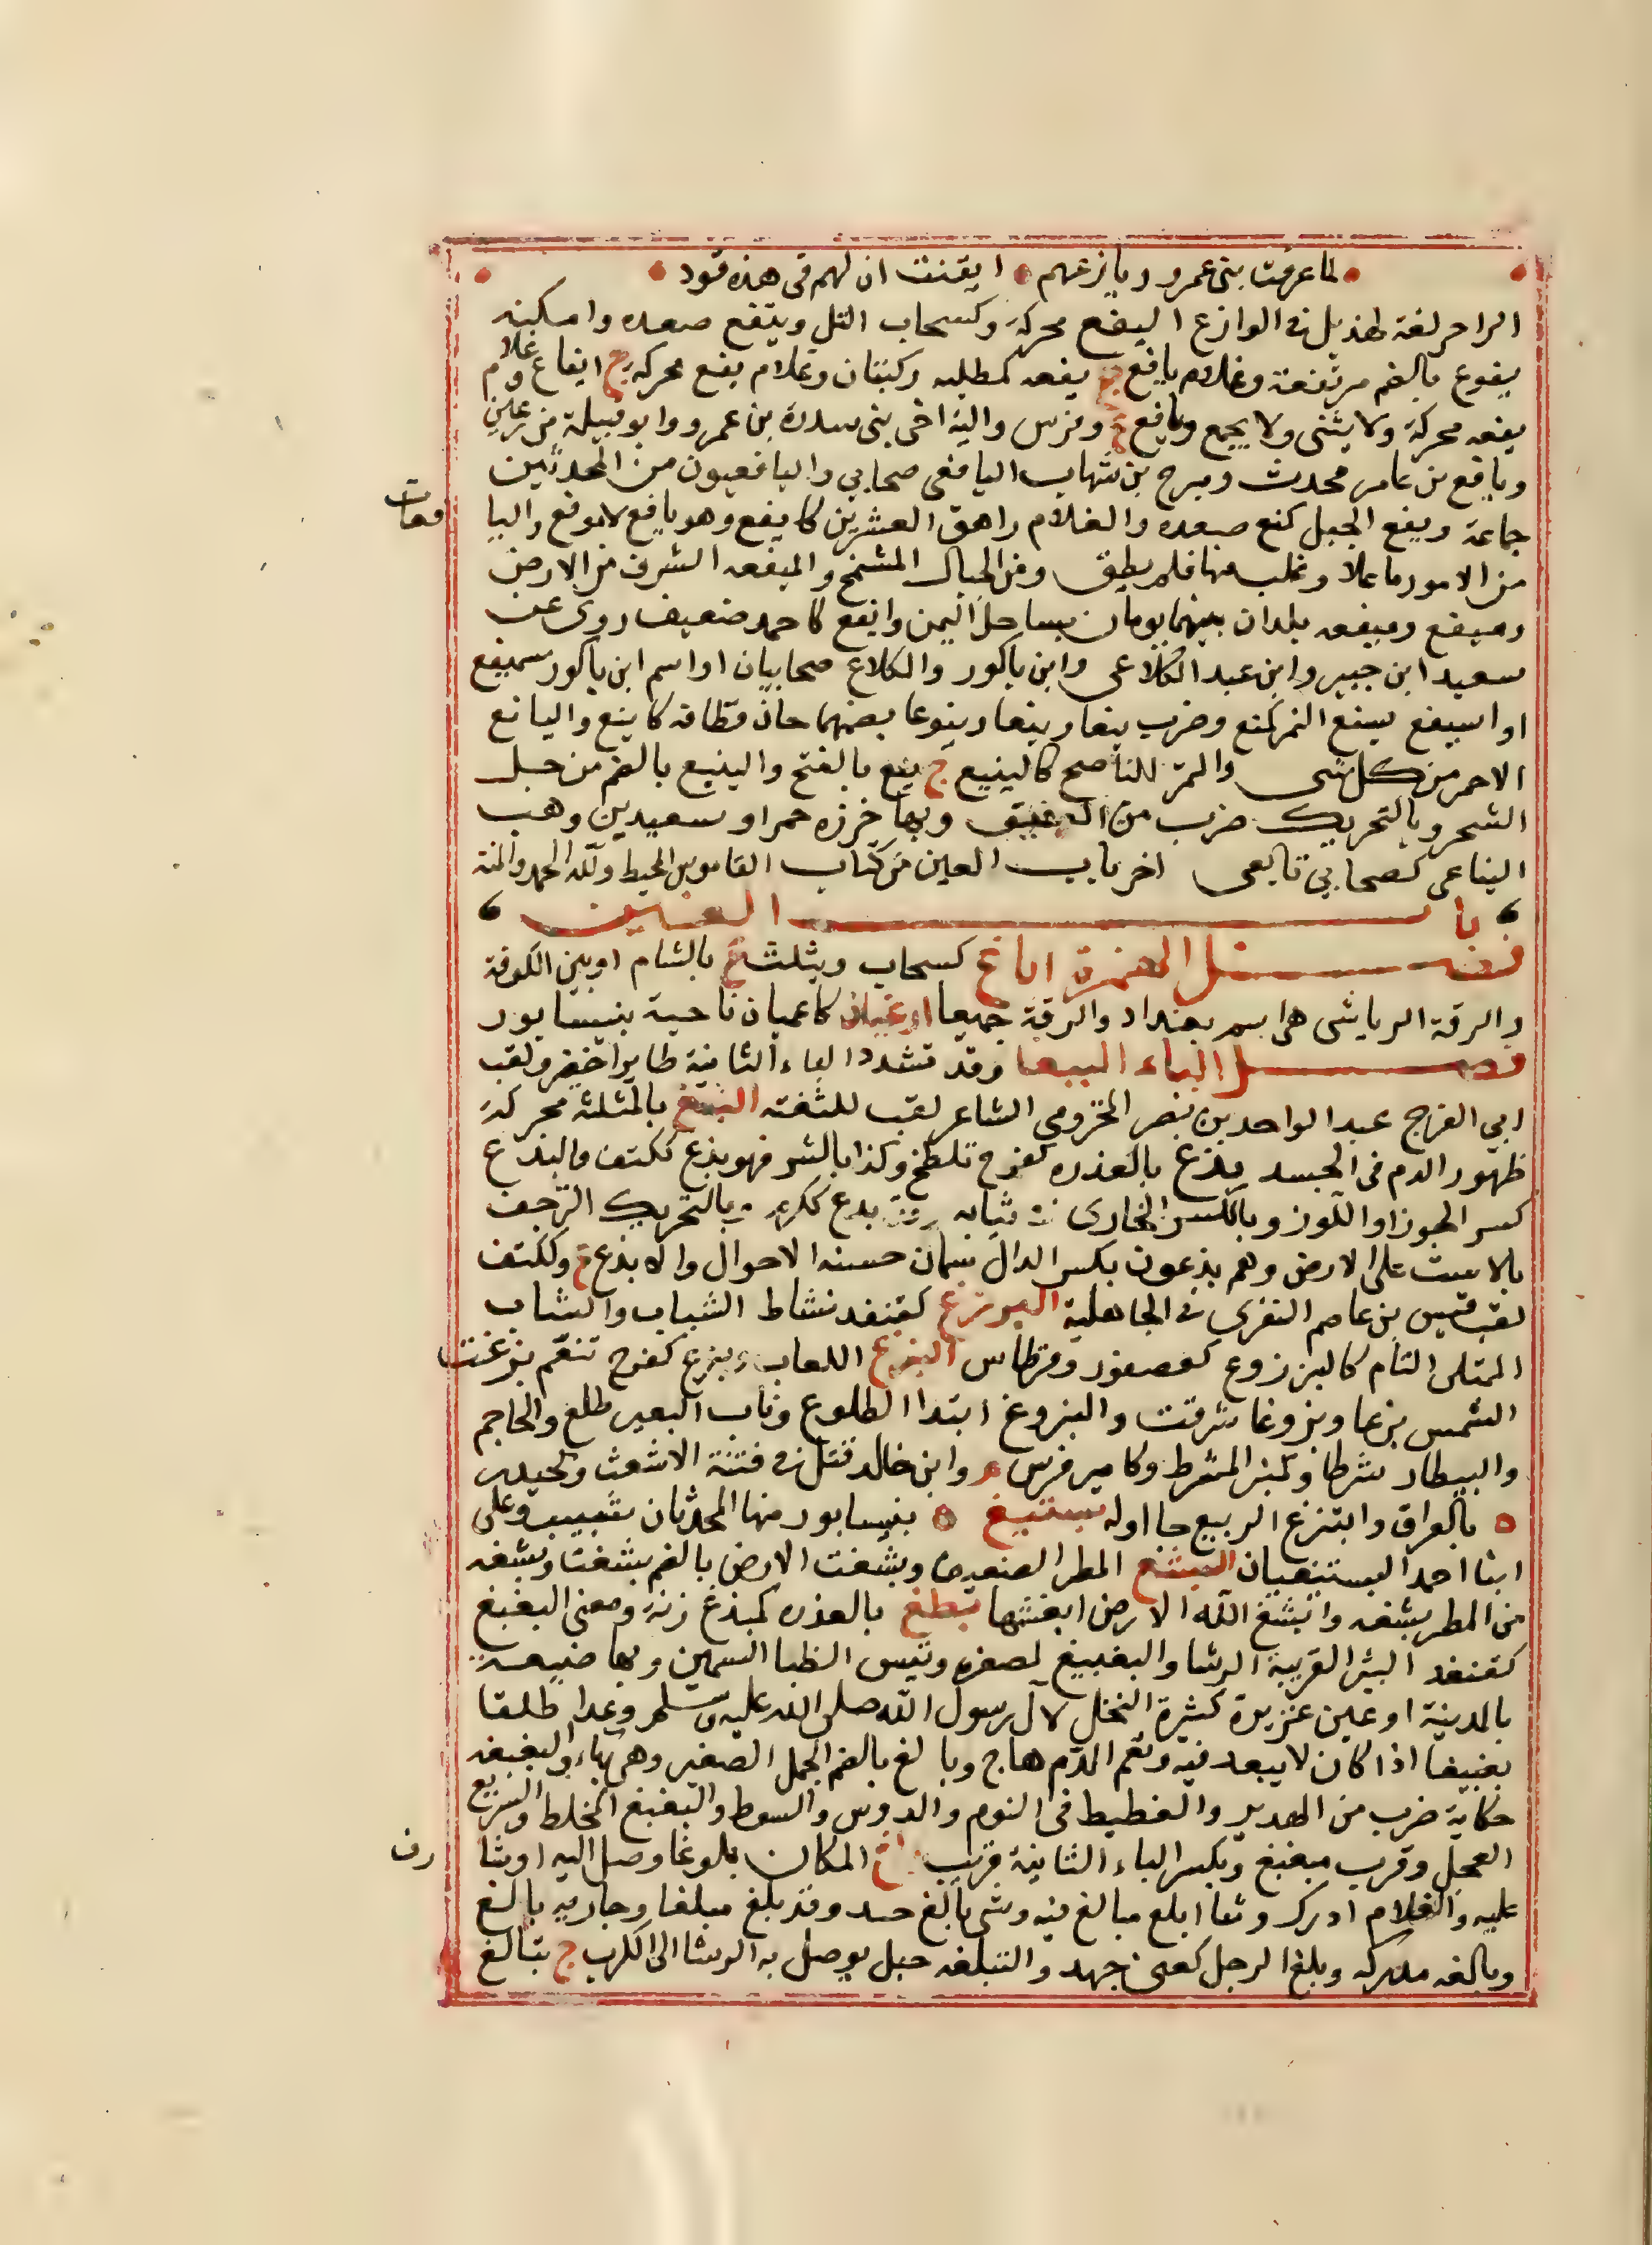 لما عرفت بنى عمرو ويازعهم ايقنت ان لهم فى هذه قود
الراحر لغة لهذيل فى الوازع اليفع محركة وكسحاب التل ويتفع صعده وامكنه
يفوع بالضم مرتفعة وغلام يافع ج يفعه كطلبه وكتبان وغلام يفع محركه ج ايفاع وغلام
يفعه محركة ولا يثنى ولا يجمع ويافع ع وفرس والبة اخى بنى سدرة بن عمرو وابو قبيلة من رعين
ويافع بن عامر محدث ومبرح بن شهاب اليافعى صحابي واليافعيون من المحدثين
جماعة ويفع الجبل كمنع صعده والغلام راهق العشرين كايفع وهو يافع لا موفع واليا
فعات
من الامور ما علا وغلب منها فلم يطق ومن الجبال الشمخ والميفعه الشرف من الارض
وميفع وميفعه بلدان بينهما يومان بساحل اليمن وايفع كاحمد ضعيف روى عن
سعيد ابن جبير وابن عبد الكلاعى وابن ناكور والكلاع صحابيان او اسم ابن ناكور سميفع
او اسيفع ينع الثمر كمنع وضرب ينعا وينعا وينوعا بضمهما حان قطافه كاينع واليانع
الاحمر من كل شى والثمر الناضج كالينيع ج ينع بالفتح والينيع بالضم من حبل
الشحر وبالتحريك ضرب من العقيق وبهاخرزه حمراو سعيد بن وهب
اليناعى كصحابي تابعى اخر باب العين من كتاب القاموس المحيط ولله الحمد والمنة
باب الغين
فصل الهمزة اباغ كسحاب ويثلث ع بالشام او بين الكوفة
والرقة الرياشى هى اسم بغداد والرقة جميعا ارغيان كاعميان ناحية بنيسابور
فصل الباء الببغا وقد تشدد الباء الثانية طاير اخضر ولقب
ابي الفرج عبد الواحد بن نصر المخزومي الشاعر لقب للثغته البثغ بالمثلثة محركة
ظهور الدم فى الجسد بدغ بالعذره كفرح تلطخ وكذا بالشر فهو بدغ ككتف والبدغ
كسر الجوز او اللوز وبالكسر الخارى فى ثيابه وقد بدغ ككرم وبالتحريك التزحف
بالاست على الارض وهم بدغون بكسر الدال سمان حسنه الاحوال والابدغ ع وككتف
لقب قيس بن عاصم المنقرى فى الجاهلية البرزغ كقنفد نشاط الشباب والشاب
الممتلى التام كالبرزوغ كعصفور وقرطاس البزغ اللعاب وبزغ كفرح تنعم بزغت
الشمس بزغا وبزوغا شرقت والبزوغ ابتدا الطلوع وناب البعير طلع والحاجم
والبيطار شرطا وكمنبر المشرط وكامير فرس م وابن خالد قتل فى فتنة الاشعث وكحيدر
ه بالعراق وابتزغ الربيع جا اوله بستيغ ه بنيسابور منها المحدثان شبيب وعلى
ابنا احمد البستيغيان البشغ المطر الضعيف وبشغت الارض بالضم بشغت وبشغه
من المطر بشغه وابشغ الله الارض ابغشها بطغ بالعذره كبدغ زنة ومعنى البغبغ
كقنفد البئر القريبة الرشا والبغيبغ لصغره وتيس الظبا السمين وبها ضيعة
بالمدينة او عين غزيرة كثيرة النخل لآل رسول الله صلى الله عليه وسلم وعدا طلقا
بغيبغا اذا كان لا يبعد فيه وبغ الدم هاج وبا لغ بالضم الجمل الصغير وهى بهاء والبغبغه
حكاية ضرب من الهدير والغطيط فى النوم والدوس والسوط والبغبغ المخلط والسريع
العجل وقرب مبغبغ وبكسر الباء الثانية قريب بلغ المكان بلوغا وصل اليه او شا
رف
عليه والغلام ادرك وثنا ابلغ مبالغ فيه وشى بالغ جيد وقد بلغ مبلغا وجاريه بالغ
وبالغه مدركه وبلغ الرجل كعنى جهد والتبلغه حبل يوصل به الرشا الى الكرب ج تبالغ